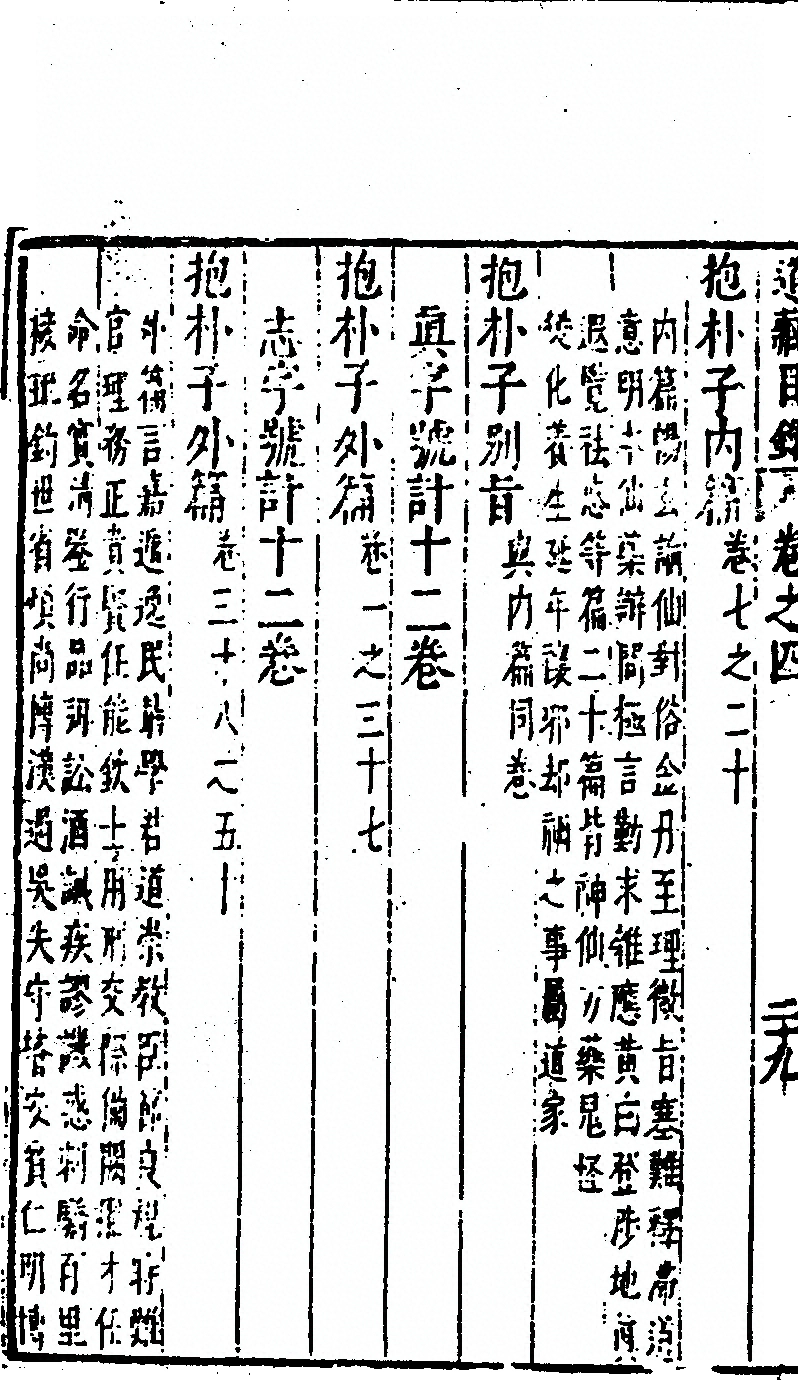 道藏目錄 卷之四 二十九
抱朴子內篇 卷七之二十
內篇暢玄論仙對俗金丹至理微旨塞難釋滯道
意明本仙藥辯問極言勤求雜應黃白登涉地真
遐覽祛惑等篇二十篇皆神仙方藥鬼怪
變化養生延年禳邪却禍之事屬道家
抱朴子別旨 與內篇同卷
真字號計十二卷
抱朴子外篇 卷一之三十七
志字號計十二卷
抱朴子外篇 卷三十八之五十
外篇言嘉遯逸民勗學君道崇教臣節良規時難
官理務正貴賢任能欽士用刑交際備闕擢才任
命名實清鑒行品弭訟酒誡疾謬譏惑刺驕百里
接疏鈞世省煩尚博漢過吳失守塉安貧仁明博